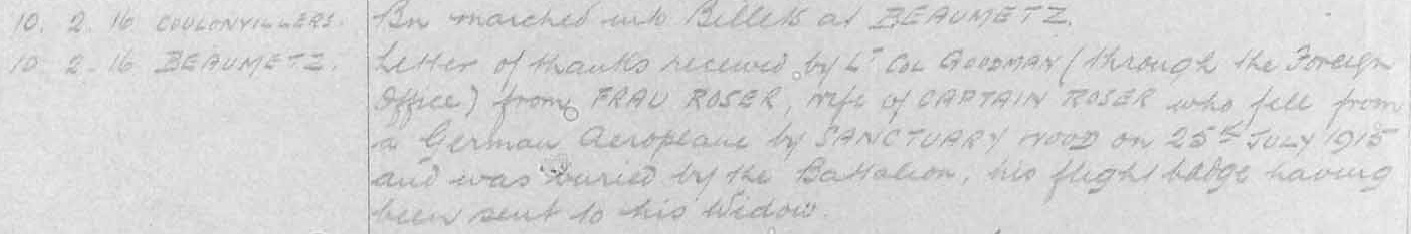 10. 2. 16 COULONVILLERS. Bn marched into Billets at BEAUMETZ.
10 2. 16 BEAUMETZ. Letter of thanks received by Lt Col GOODMAN (through the Foreign
Office) from FRAU ROSER, wife of CAPTAIN ROSER who fell from
a German Aeroplane by SANCTUARY WOOD on 25th JULY 1915
and was buried by the Battalion, his flight badge having
been sent to his Widow.